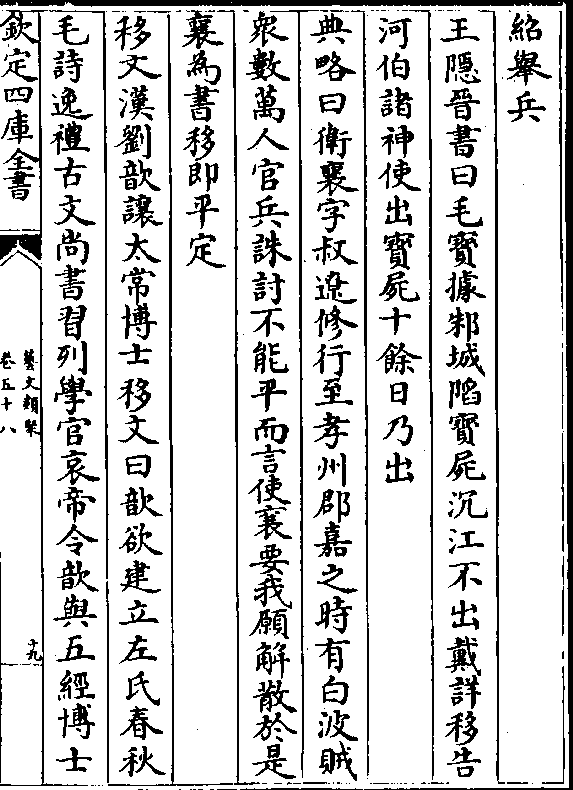 紹舉兵
王隱晉書曰毛寶據邾城陷寶屍沉江不出戴詳移告
河伯諸神使出寶屍十餘日乃出
典略曰衛襄字叔遼修行至孝州郡嘉之時有白波賊
衆數萬人官兵誅討不能平而言使襄要我願解散於是
襄為書移即平定
移文漢劉歆讓太常博士移文曰歆欲建立左氏春秋
毛詩逸禮古文尚書習列學官哀帝令歆與五經博士
欽定四庫全書
藝文類聚
卷五十八
十九